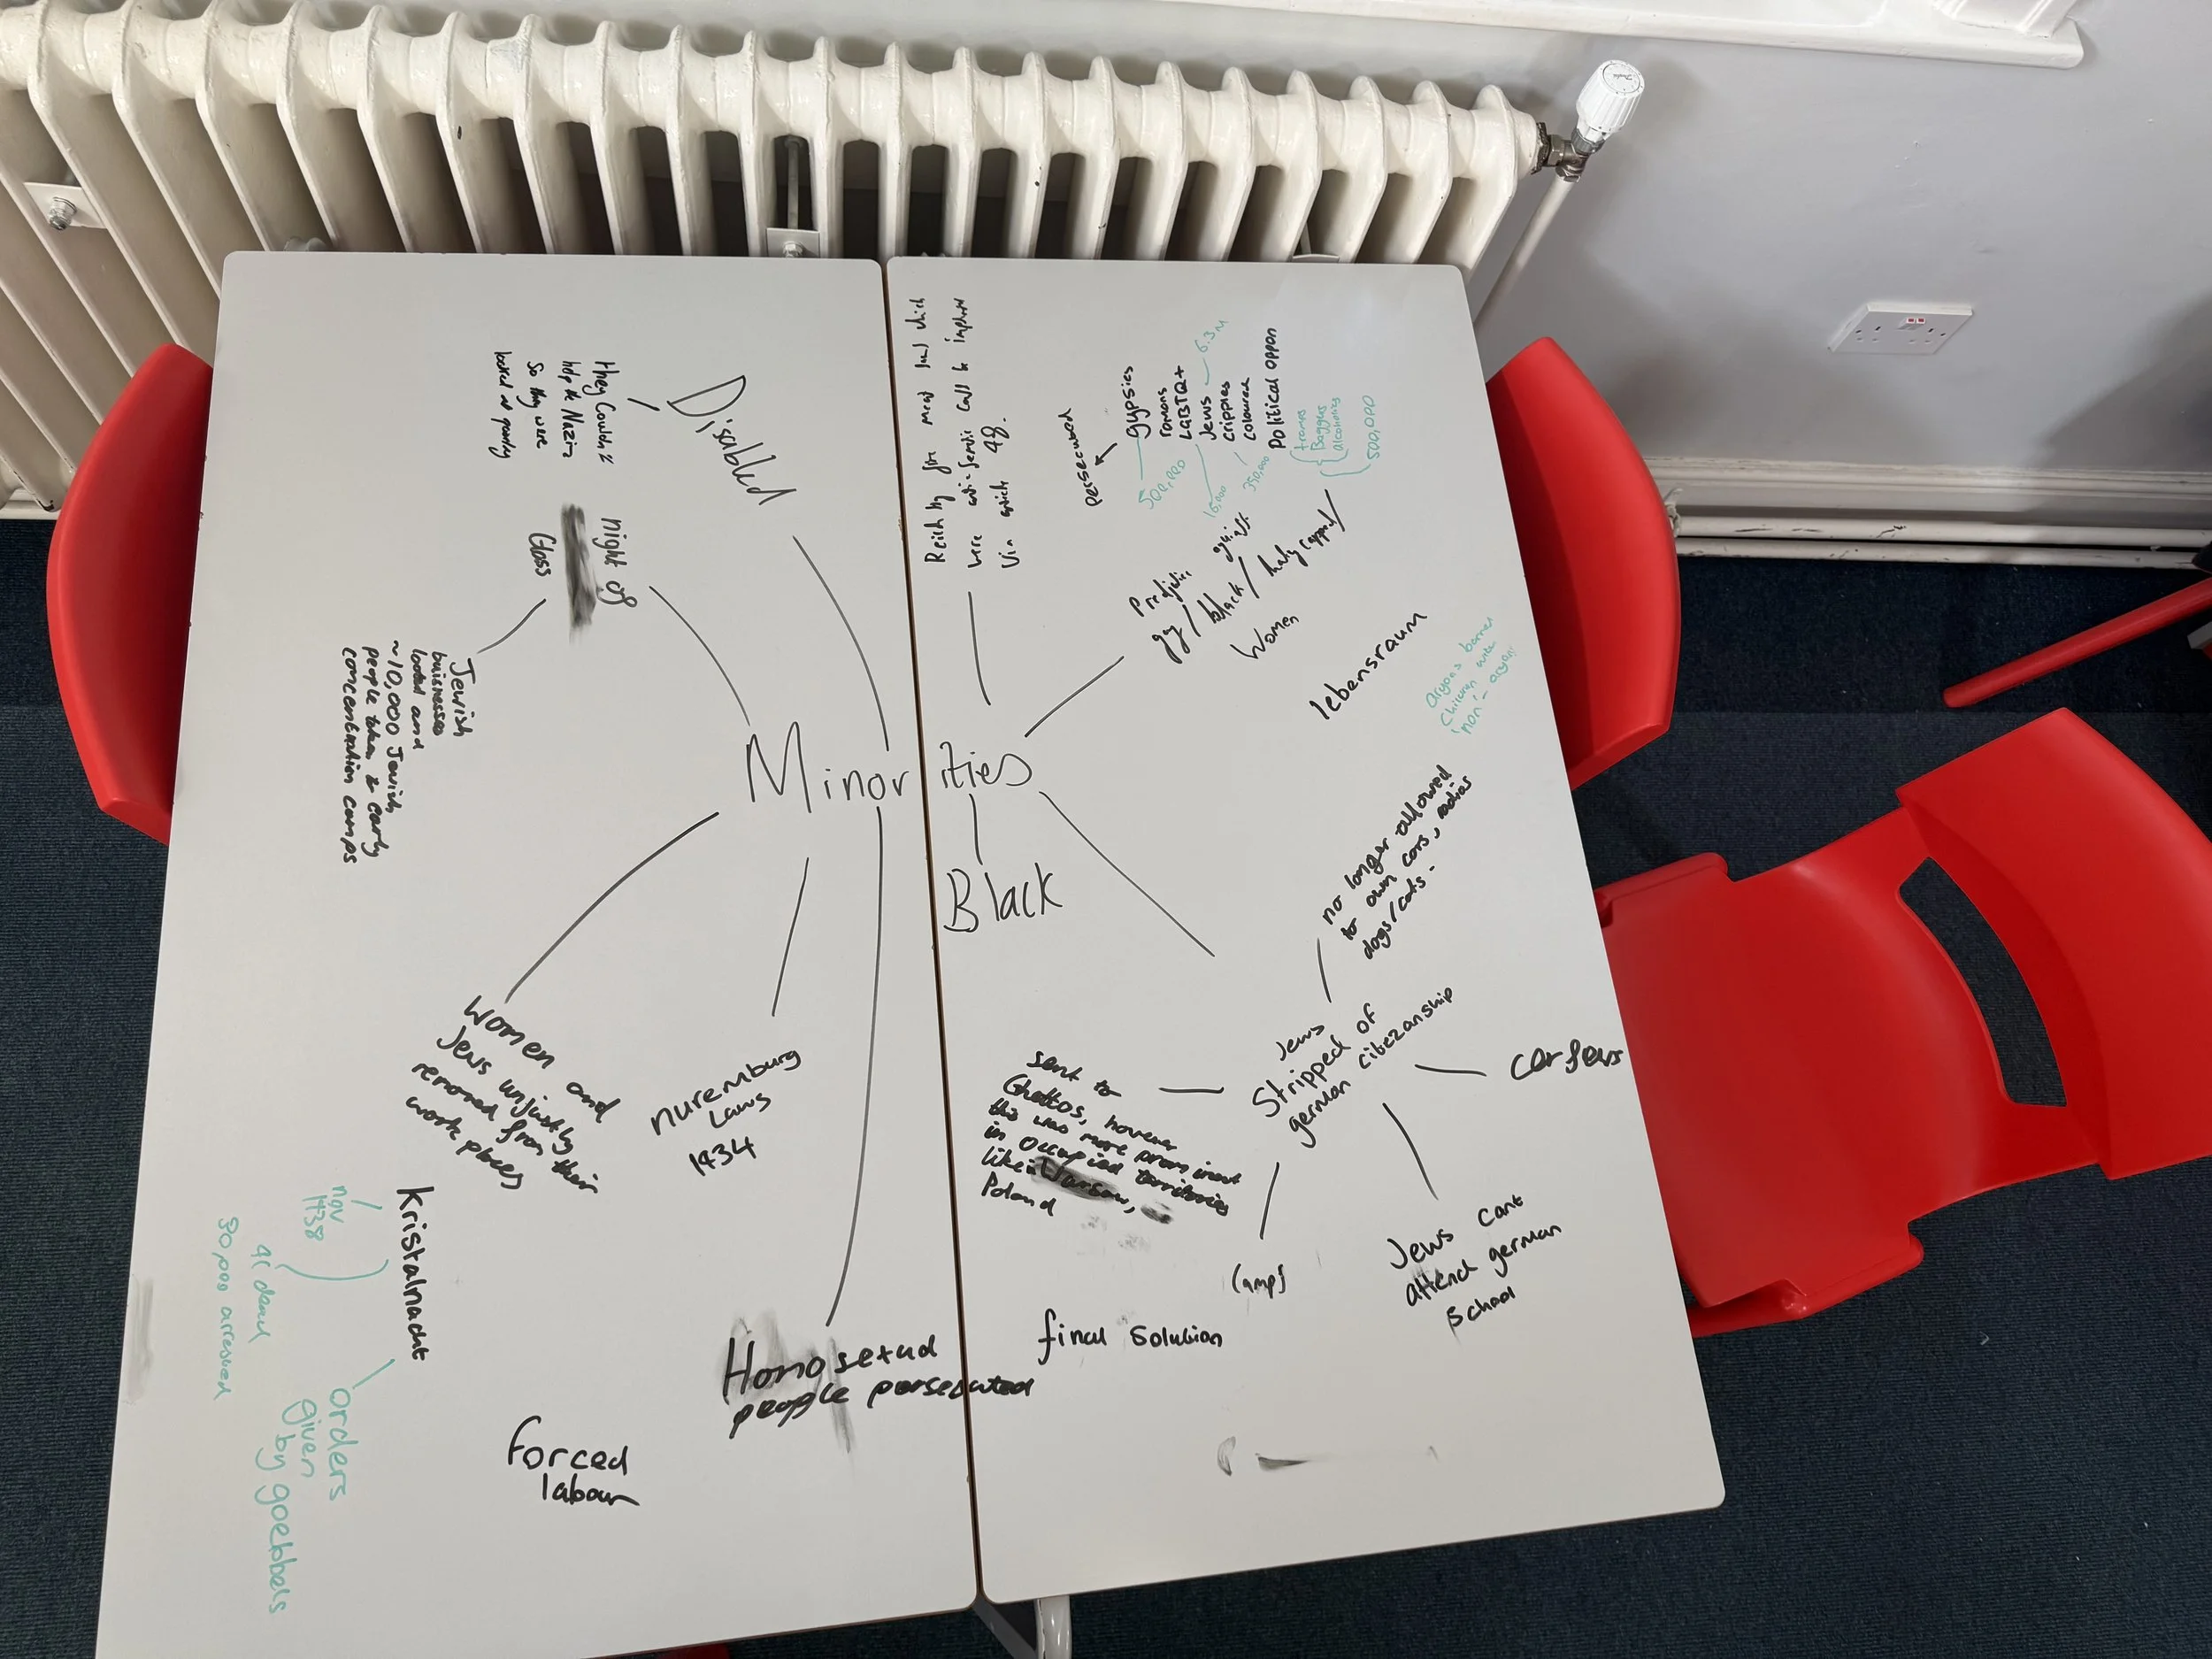 Minorities
Disabled
they couldn't
help the Nazis
so they were
looked at poorly
night of
Glass
Jewish
businesses
looted and
~10,000 Jewish
people taken to early
concentration camps
Women and
Jews unjustly
removed from their
work places
nuremburg
Laws
1934
kristalnacht
nov
1938
91 dead
30,000 arrested
orders
given
by goebbels
forced
labour
Homosexual
people persecuted
Reichstag fire meant laws which
were anti-semitic could be
via article 48.
persecuted
gypsies
romans
LGBTQ+
Jews
cripples
coloured
Political oppon
6.3M
500,000
15,000
350,000
trans
Beggars
alcoholics
500,000
against
gay / black /
Women
lebensraum
aryans banned
children with
'non'-aryans
Black
Jews
Stripped of
german citezanship
no longer allowed
to own cars, radios
dogs/cats.
curfews
Jews cant
attend german
school
Camps
sent to
Ghettos, however
this was more prominent
in occupied territories
like in Warsaw,
Poland
final solution